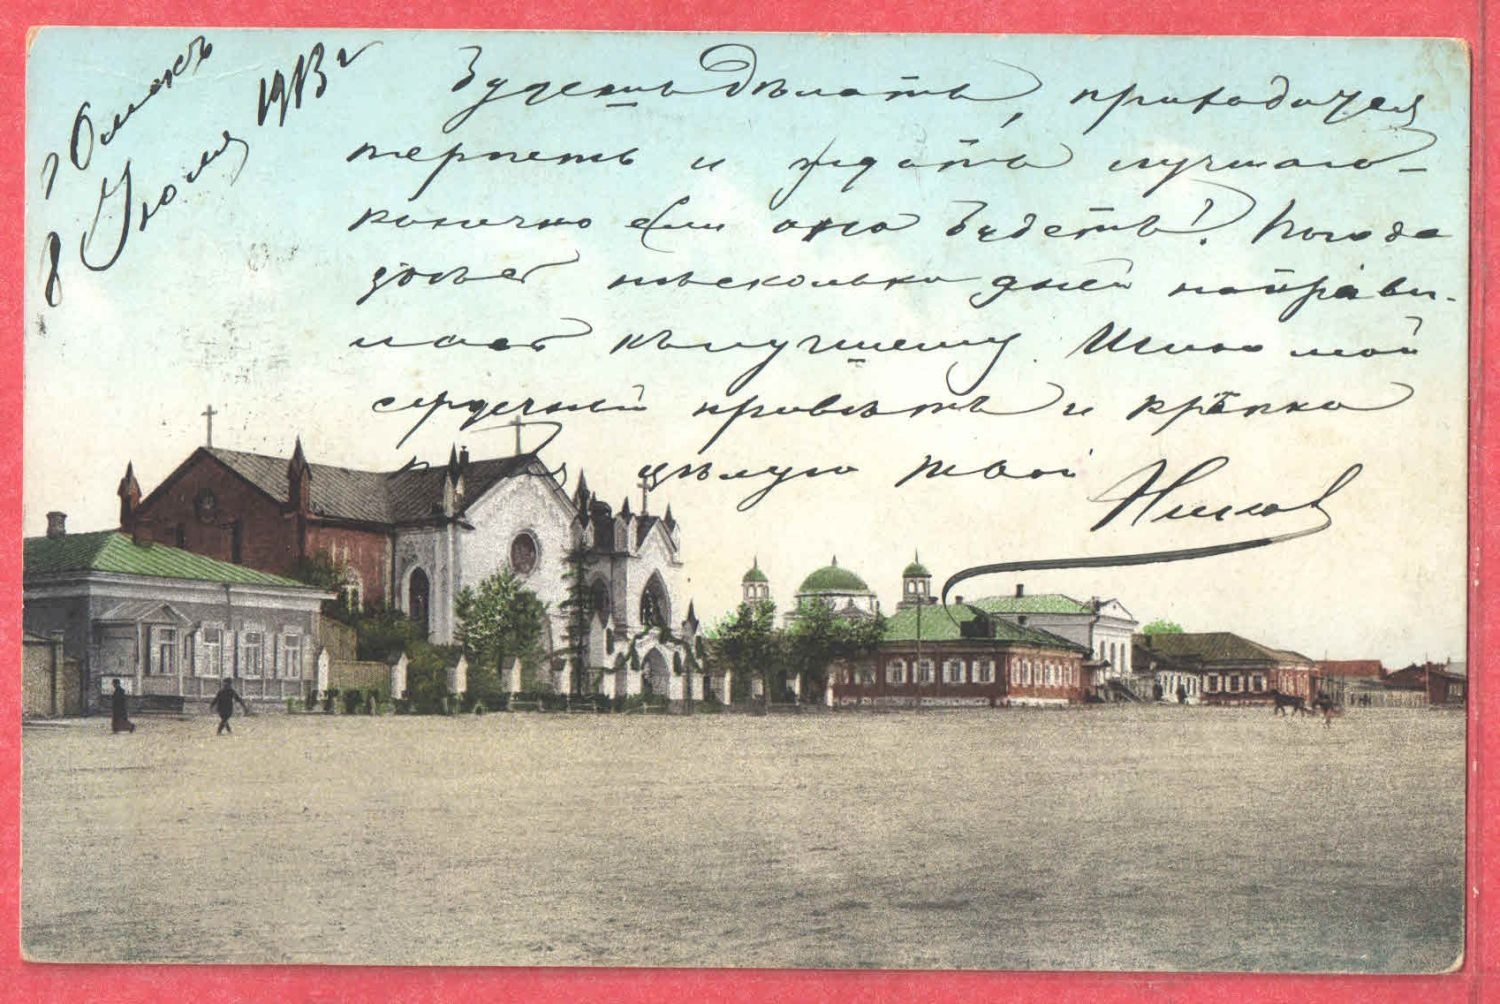 г Омскъ
8 Іюля 1913 г
будешь дѣлать, приходится
терпеть и ждать лучшаго-
конечно если оно будетъ! Погода
здѣсь нѣсколько дней направи-
лась къ лучшему. Шлю мой
сердечный привѣтъ и крѣпко
цѣлую твой